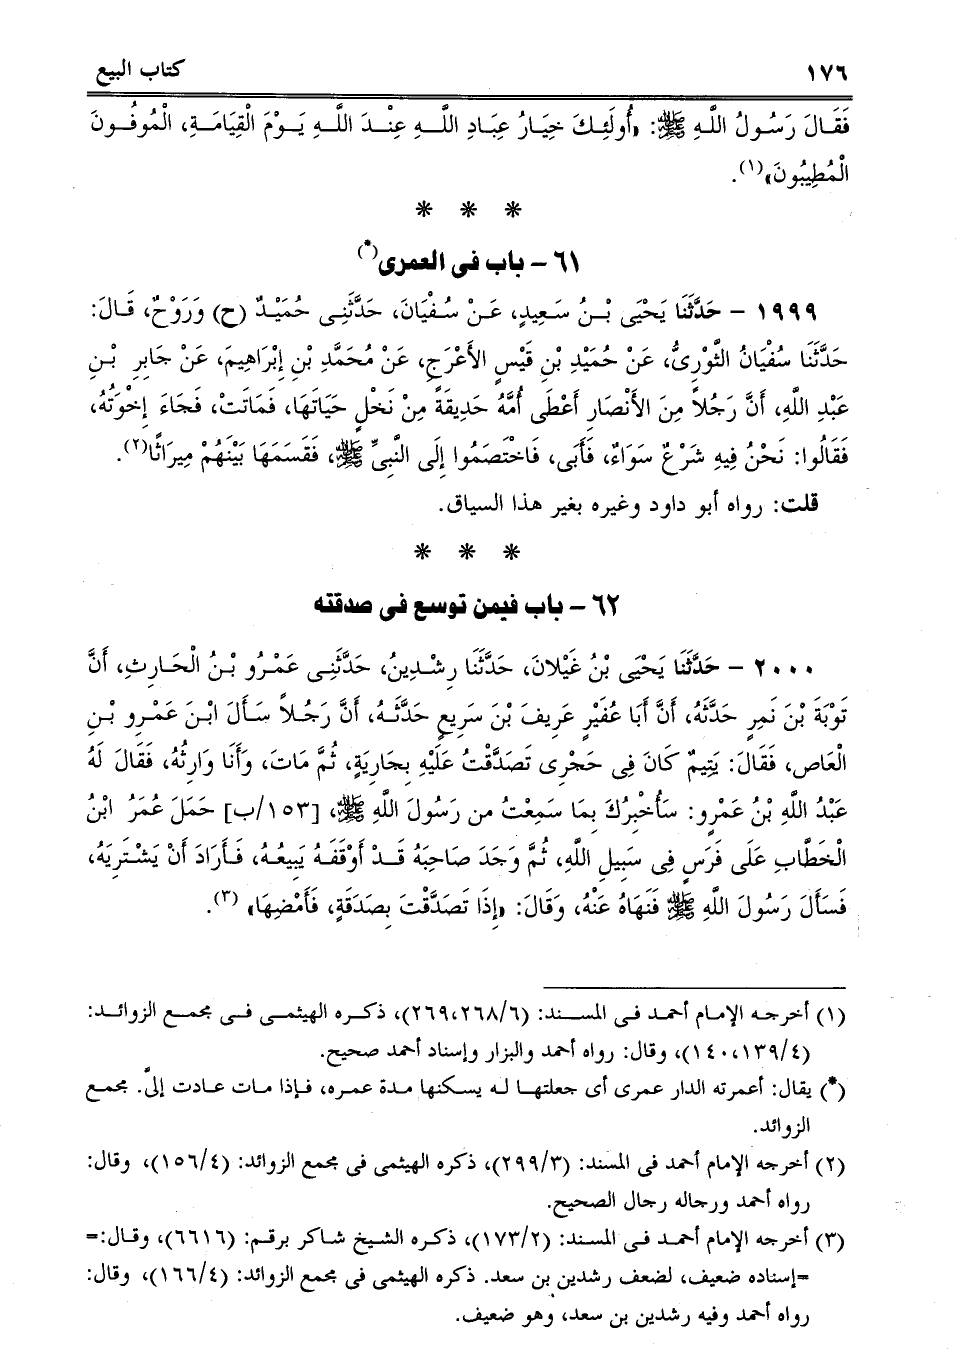 ١٧٦ كتاب البيع
فَقَالَ رَسُولُ اللَّهِ ﷺ: «أُولَئِكَ خِيَارُ عِبَادِ اللَّهِ عِنْدَ اللَّهِ يَوْمَ الْقِيَامَةِ، الْمُوفُونَ
الْمُطِيبُونَ»(١).
* * *
٦١ – باب فى العمرى(*)
١٩٩٩ – حَدَّثَنَا يَحْيَى بْنُ سَعِيدٍ، عَنْ سُفْيَانَ، حَدَّثَنِى حُمَيْدٌ (ح) وَرَوْحٌ، قَالَ:
حَدَّثَنَا سُفْيَانُ الثَّوْرِىُّ، عَنْ حُمَيْدِ بْنِ قَيْسٍ الأَعْرَجِ، عَنْ مُحَمَّدِ بْنِ إِبْرَاهِيمَ، عَنْ جَابِرِ بْنِ
عَبْدِ اللَّهِ، أَنَّ رَجُلاً مِنَ الأَنْصَارِ أَعْطَى أُمَّهُ حَدِيقَةً مِنْ نَخْلٍ حَيَاتَهَا، فَمَاتَتْ، فَجَاءَ إِخْوَتُهُ،
فَقَالُوا: نَحْنُ فِيهِ شَرْعٌ سَوَاءٌ، فَأَبَى، فَاخْتَصَمُوا إِلَى النَّبِىِّ ﷺ، فَقَسَمَهَا بَيْنَهُمْ مِيرَاثًا(٢).
قلت: رواه أبو داود وغيره بغير هذا السياق.
* * *
٦٢ – باب فيمن توسع فى صدقته
٢٠٠٠ – حَدَّثَنَا يَحْيَى بْنُ غَيْلانَ، حَدَّثَنَا رِشْدِينُ، حَدَّثَنِى عَمْرُو بْنُ الْحَارِثِ، أَنَّ
تَوْبَةَ بْنَ نَمِرٍ حَدَّثَهُ، أَنَّ أَبَا عُفَيْرٍ عَرِيفَ بْنَ سَرِيعٍ حَدَّثَهُ، أَنَّ رَجُلاً سَأَلَ ابْنَ عَمْرِو بْنِ
الْعَاصِ، فَقَالَ: يَتِيمٌ كَانَ فِى حَجْرِى تَصَدَّقْتُ عَلَيْهِ بِجَارِيَةٍ، ثُمَّ مَاتَ، وَأَنَا وَارِثُهُ، فَقَالَ لَهُ
عَبْدُ اللَّهِ بْنُ عَمْرٍو: سَأُخْبِرُكَ بِمَا سَمِعْتُ من رَسُولَ اللَّهِ ﷺ، [١٥٣/ب] حَمَلَ عُمَرُ ابْنُ
الْخَطَّابِ عَلَى فَرَسٍ فِى سَبِيلِ اللَّهِ، ثُمَّ وَجَدَ صَاحِبَهُ قَدْ أَوْقَفَهُ يَبِيعُهُ، فَأَرَادَ أَنْ يَشْتَرِيَهُ،
فَسَأَلَ رَسُولَ اللَّهِ ﷺ فَنَهَاهُ عَنْهُ، وَقَالَ: «إِذَا تَصَدَّقْتَ بِصَدَقَةٍ، فَأَمْضِهَا» (٣).
(١) أخرجه الإمام أحمد فى المسند: (٢٦٩،٢٦٨/٦)، ذكره الهيثمى فى مجمع الزوائد:
(١٤٠،١٣٩/٤)، وقال: رواه أحمد والبزار وإسناد أحمد صحيح.
(*) يقال: أعمرته الدار عمرى أى جعلتها له يسكنها مدة عمره، فإذا مات عادت إلىَّ. مجمع
الزوائد.
(٢) أخرجه الإمام أحمد فى المسند: (٢٩٩/٣)، ذكره الهيثمى فى مجمع الزوائد: (١٥٦/٤)، وقال:
رواه أحمد ورجاله رجال الصحيح.
(٣) أخرجه الإمام أحمد فى المسند: (١٧٣/٢)، ذكره الشيخ شاكر برقم: (٦٦١٦)، وقال:=
=إسناده ضعيف، لضعف رشدين بن سعد. ذكره الهيثمى فى مجمع الزوائد: (١٦٦/٤)، وقال:
رواه أحمد وفيه رشدين بن سعد، وهو ضعيف.